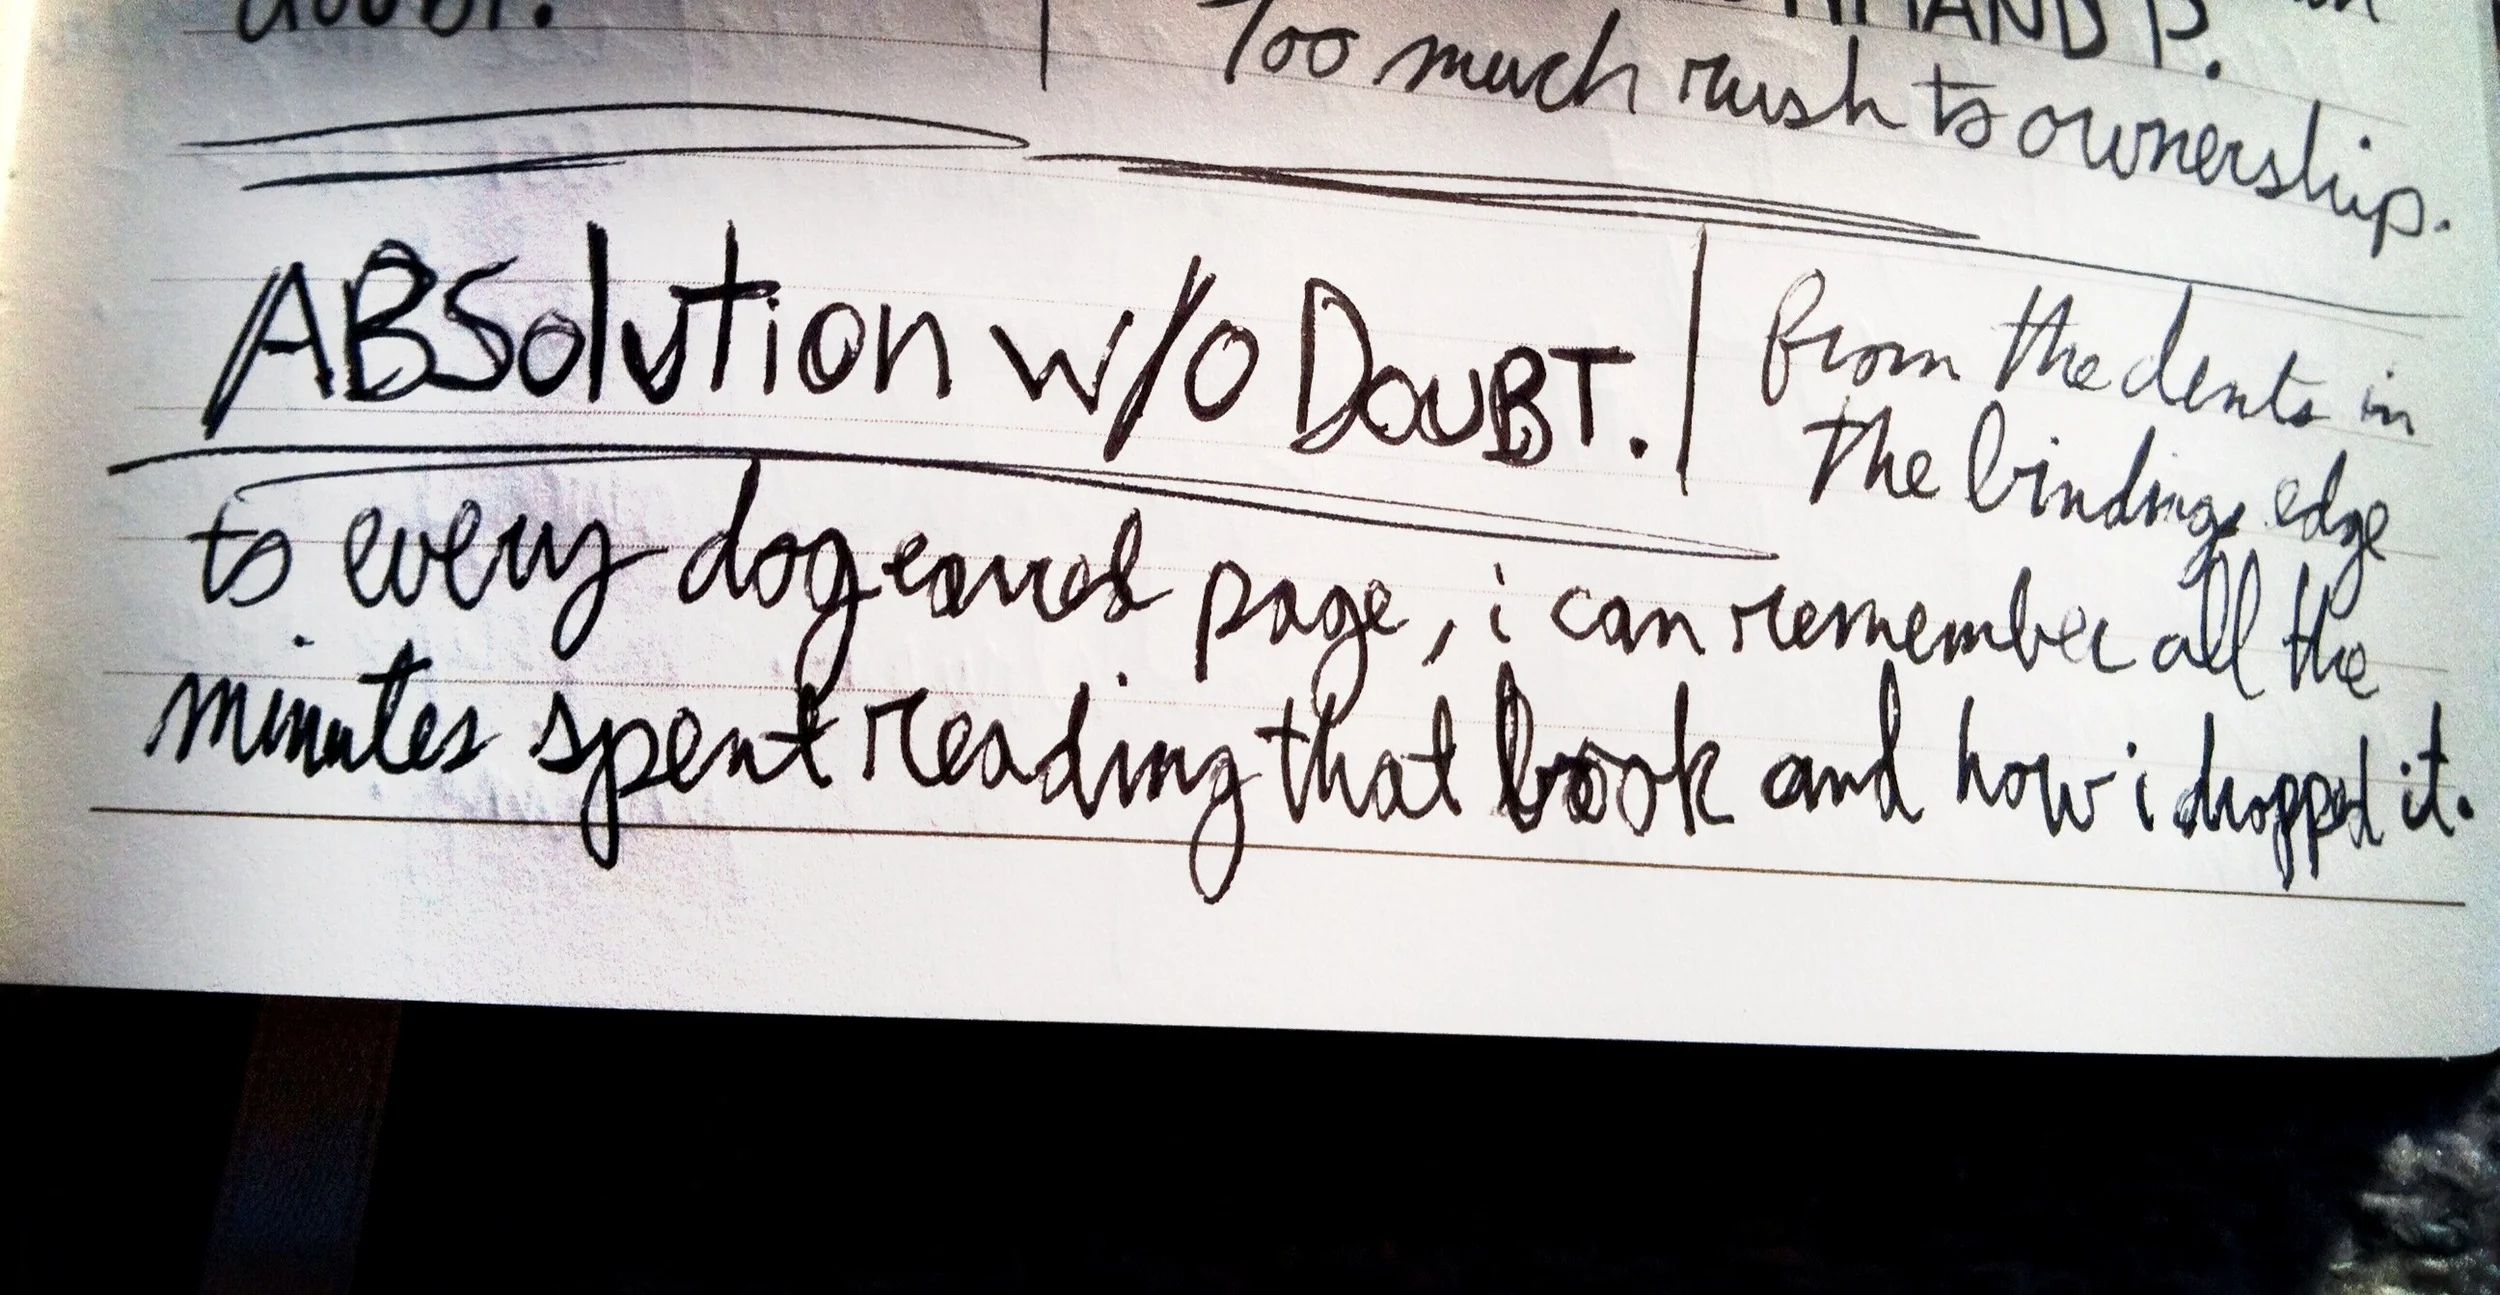 doubt.
Too much rush to ownership.
ABSolution w/o DOUBT.
from the dents in
the binding edge
to every dogeared page, i can remember all the
minutes spent reading that book and how i dropped it.